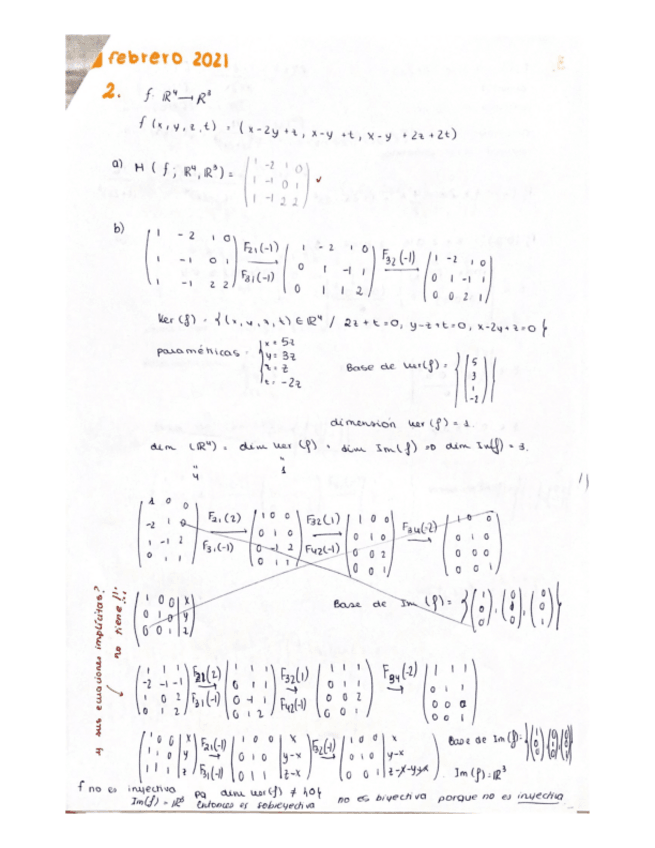 febrero 2021
2. f: R⁴ → R³
f(x, y, z, t) = (x-2y+z, x-y+t, x-y+2z+2t)
a) M(f; R⁴, R³) = (1 -2 1 0 / 1 -1 0 1 / 1 -1 2 2) ✓
b) (1 -2 1 0 / 1 -1 0 1 / 1 -1 2 2) F21(-1) F31(-1) → (1 -2 1 0 / 0 1 -1 1 / 0 1 1 2) F32(-1) → (1 -2 1 0 / 0 1 -1 1 / 0 0 2 1)
Ker(f) = {(x, y, z, t) ∈ R⁴ / 2z+t=0, y-z+t=0, x-2y+z=0}
paramétricas = { x = 5z
y = 3z
z = z
t = -2z
Base de ker(f) = {(5 3 1 -2)}
dimensión ker(f) = 1.
dim (R⁴) = dim ker(f) + dim Im(f) => dim Im(f) = 3.
" 4 " 1
(1 0 0 / -2 1 0 / 1 -1 2 / 0 1 1) F21(2) F31(-1) → (1 0 0 / 0 1 0 / 0 -1 2 / 0 1 1) F32(1) F42(-1) → (1 0 0 / 0 1 0 / 0 0 2 / 0 0 1) F34(-2) → (1 0 0 / 0 1 0 / 0 0 0 / 0 0 1)
(1 0 0 | x / 0 1 0 | y / 0 0 1 | z)
Base de Im(f) = {(1 0 0), (0 1 0), (0 0 1)}
y sus ecuaciones implícitas?
no tiene!!
(1 1 1 / -2 -1 -1 / 1 0 2 / 0 1 2) F21(2) F31(-1) → (1 1 1 / 0 1 1 / 0 -1 1 / 0 1 2) F32(1) F42(-1) → (1 1 1 / 0 1 1 / 0 0 2 / 0 0 1) F34(-2) → (1 1 1 / 0 1 1 / 0 0 0 / 0 0 1)
(1 0 0 | x / 1 1 0 | y / 1 1 1 | z) F21(-1) F31(-1) → (1 0 0 | x / 0 1 0 | y-x / 0 1 1 | z-x) F32(-1) → (1 0 0 | x / 0 1 0 | y-x / 0 0 1 | z-x-y+x)
Base de Im(f) =
Im(f) = R³
f no es inyectiva pq dim ker(f) ≠ {0}
Im(f) = R³ entonces es sobreyectiva no es biyectiva porque no es inyectiva